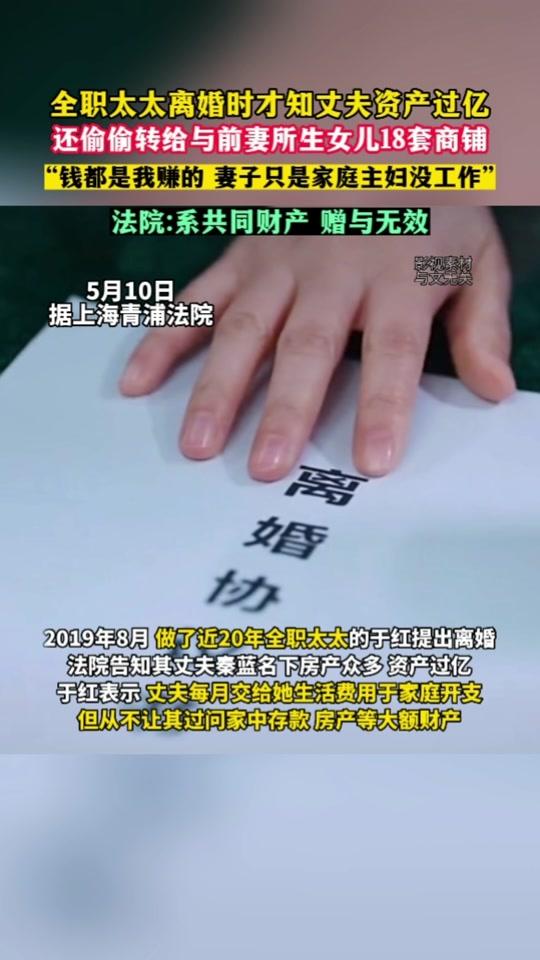 全职太太离婚时才知丈夫资产过亿
还偷偷转给与前妻所生女儿18套商铺
“钱都是我赚的 妻子只是家庭主妇没工作”
法院:系共同财产 赠与无效
影视素材
与文无关
5月10日
据上海青浦法院
离
婚
协
2019年8月 做了近20年全职太太的于红提出离婚
法院告知其丈夫秦蓝名下房产众多 资产过亿
于红表示 丈夫每月交给她生活费用于家庭开支
但从不让其过问家中存款 房产等大额财产